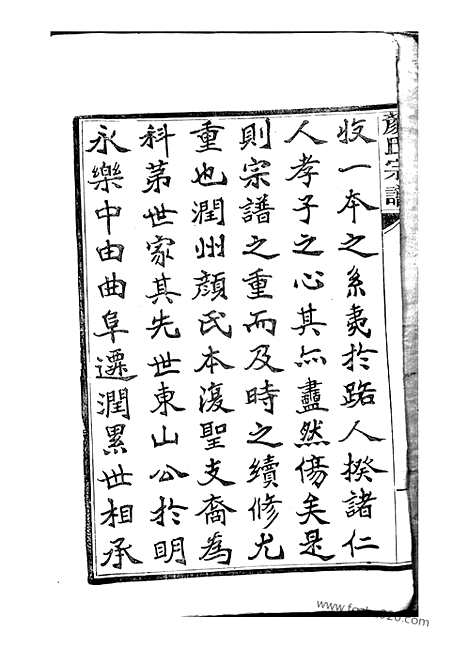 顏氏宗譜
收一本之系夷於路人揆諸仁
人孝子之心其亦盡然傷矣是
則宗譜之重而及時之續修尤
重也潤州顔氏本復聖支裔為
科第世家其先世東山公於明
永樂中由曲阜遷潤累世相承